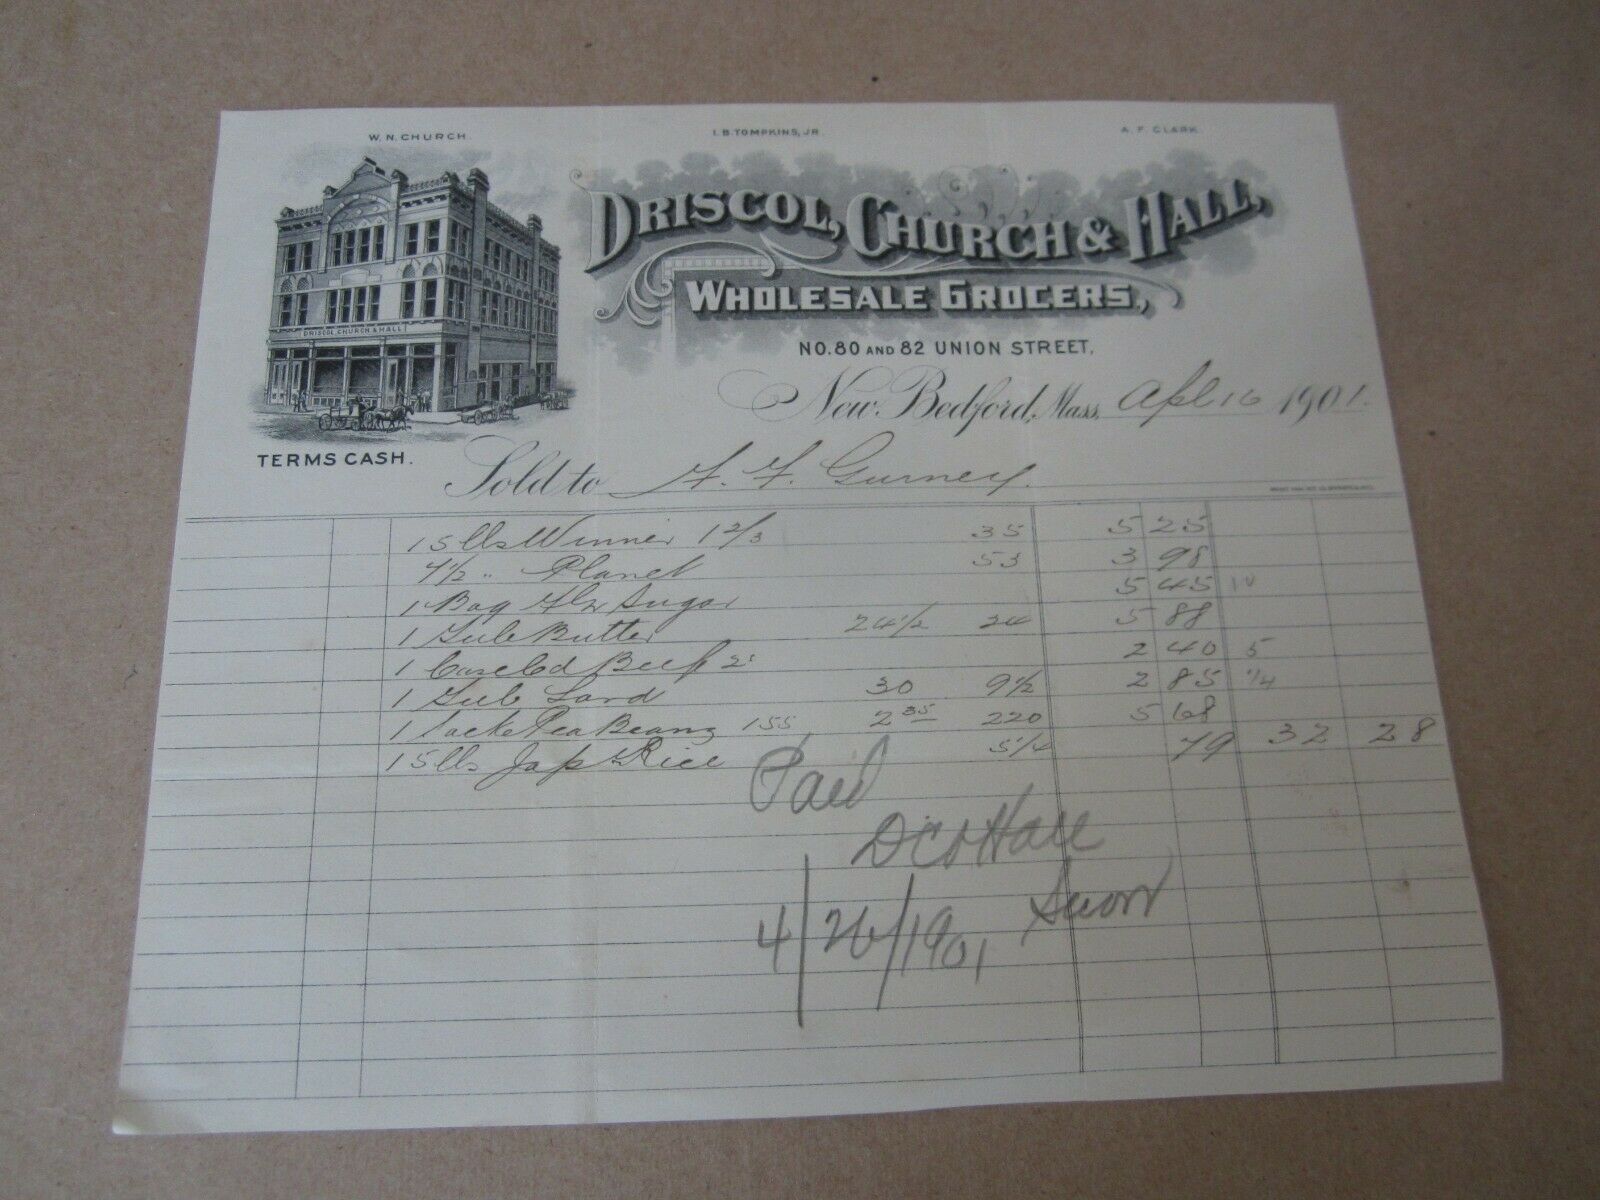 W. N. CHURCH. I. B. TOMPKINS, JR. A. F. CLARK.
DRISCOL, CHURCH & HALL,
WHOLESALE GROCERS,
DRISCOL, CHURCH & HALL
NO. 80 AND 82 UNION STREET,
New Bedford, Mass. Apl 16 1901.
TERMS CASH.
Sold to F. F. Gurney.
15 lbs Winner 1 2/3 35 5 25
7 1/2 " Planet 53 3 98
1 Bag Sugar 5 45 10
1 Tub Butter 24 1/2 24 5 88
1 Case Cd Beef 2s 2 40 5
1 Tub Lard 30 9 1/2 2 85 1/4
1 Sack Pea Beans 155 2 35 220 5 68
15 lbs Jap Rice 5 1/4 79 32 28
Paid
D C & Hall
4/26/1901